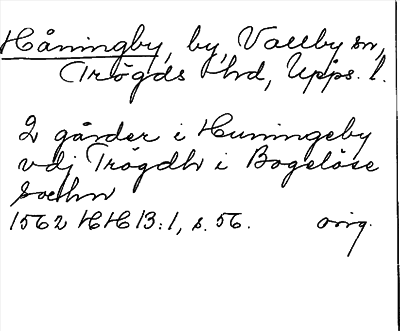 Håningby, by, Vallby sn,
Trögds hd, Upps. l.
2 gårder i Huningeby
vdj Trögdh i Bogelöse
Sochn
1562 HH B:1, s. 56. orig.